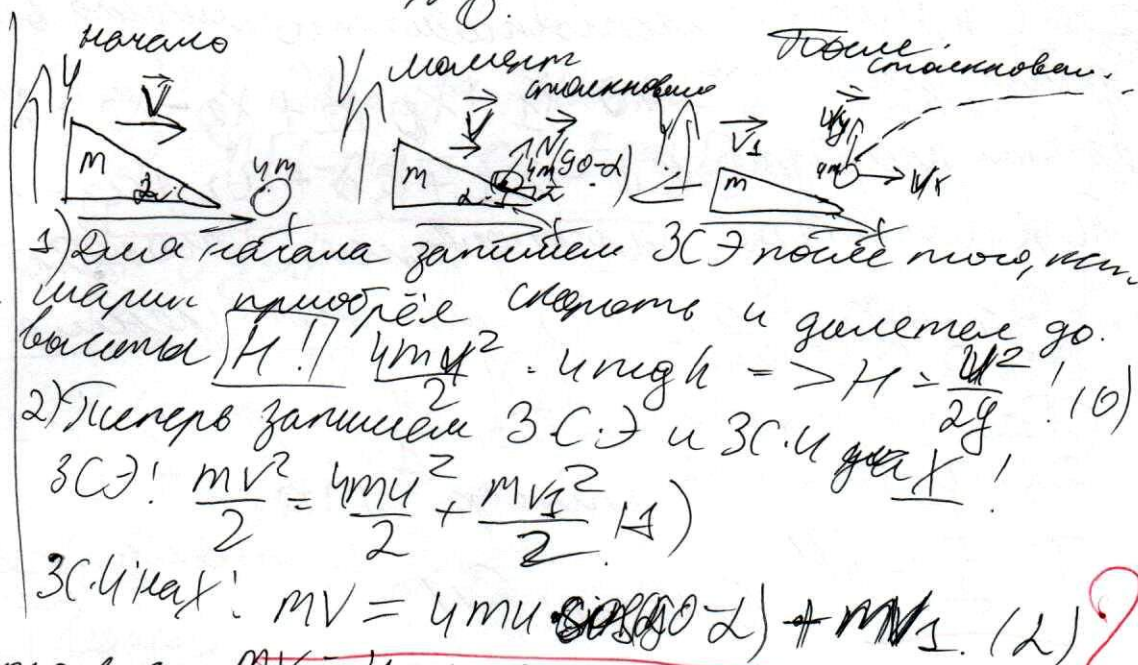 начало
момент столкновения
После столкновен.
y V m α 4m x
y V N 4m (90-α) m α x
y V₁ m Uy 4m Ux x
1) Для начала запишем ЗСЭ после того, как
шарик приобрёл скорость и долетел до
высоты H! 4mu²/2 = 4mgh => H = u²/2g! (0)
2) Теперь запишем З.С.Э и ЗСИ на X!
ЗСЭ! mV²/2 = 4mu²/2 + mV₁²/2 (1)
ЗС.И на X: mV = 4mu cos(90-α) + mV₁. (2) ?